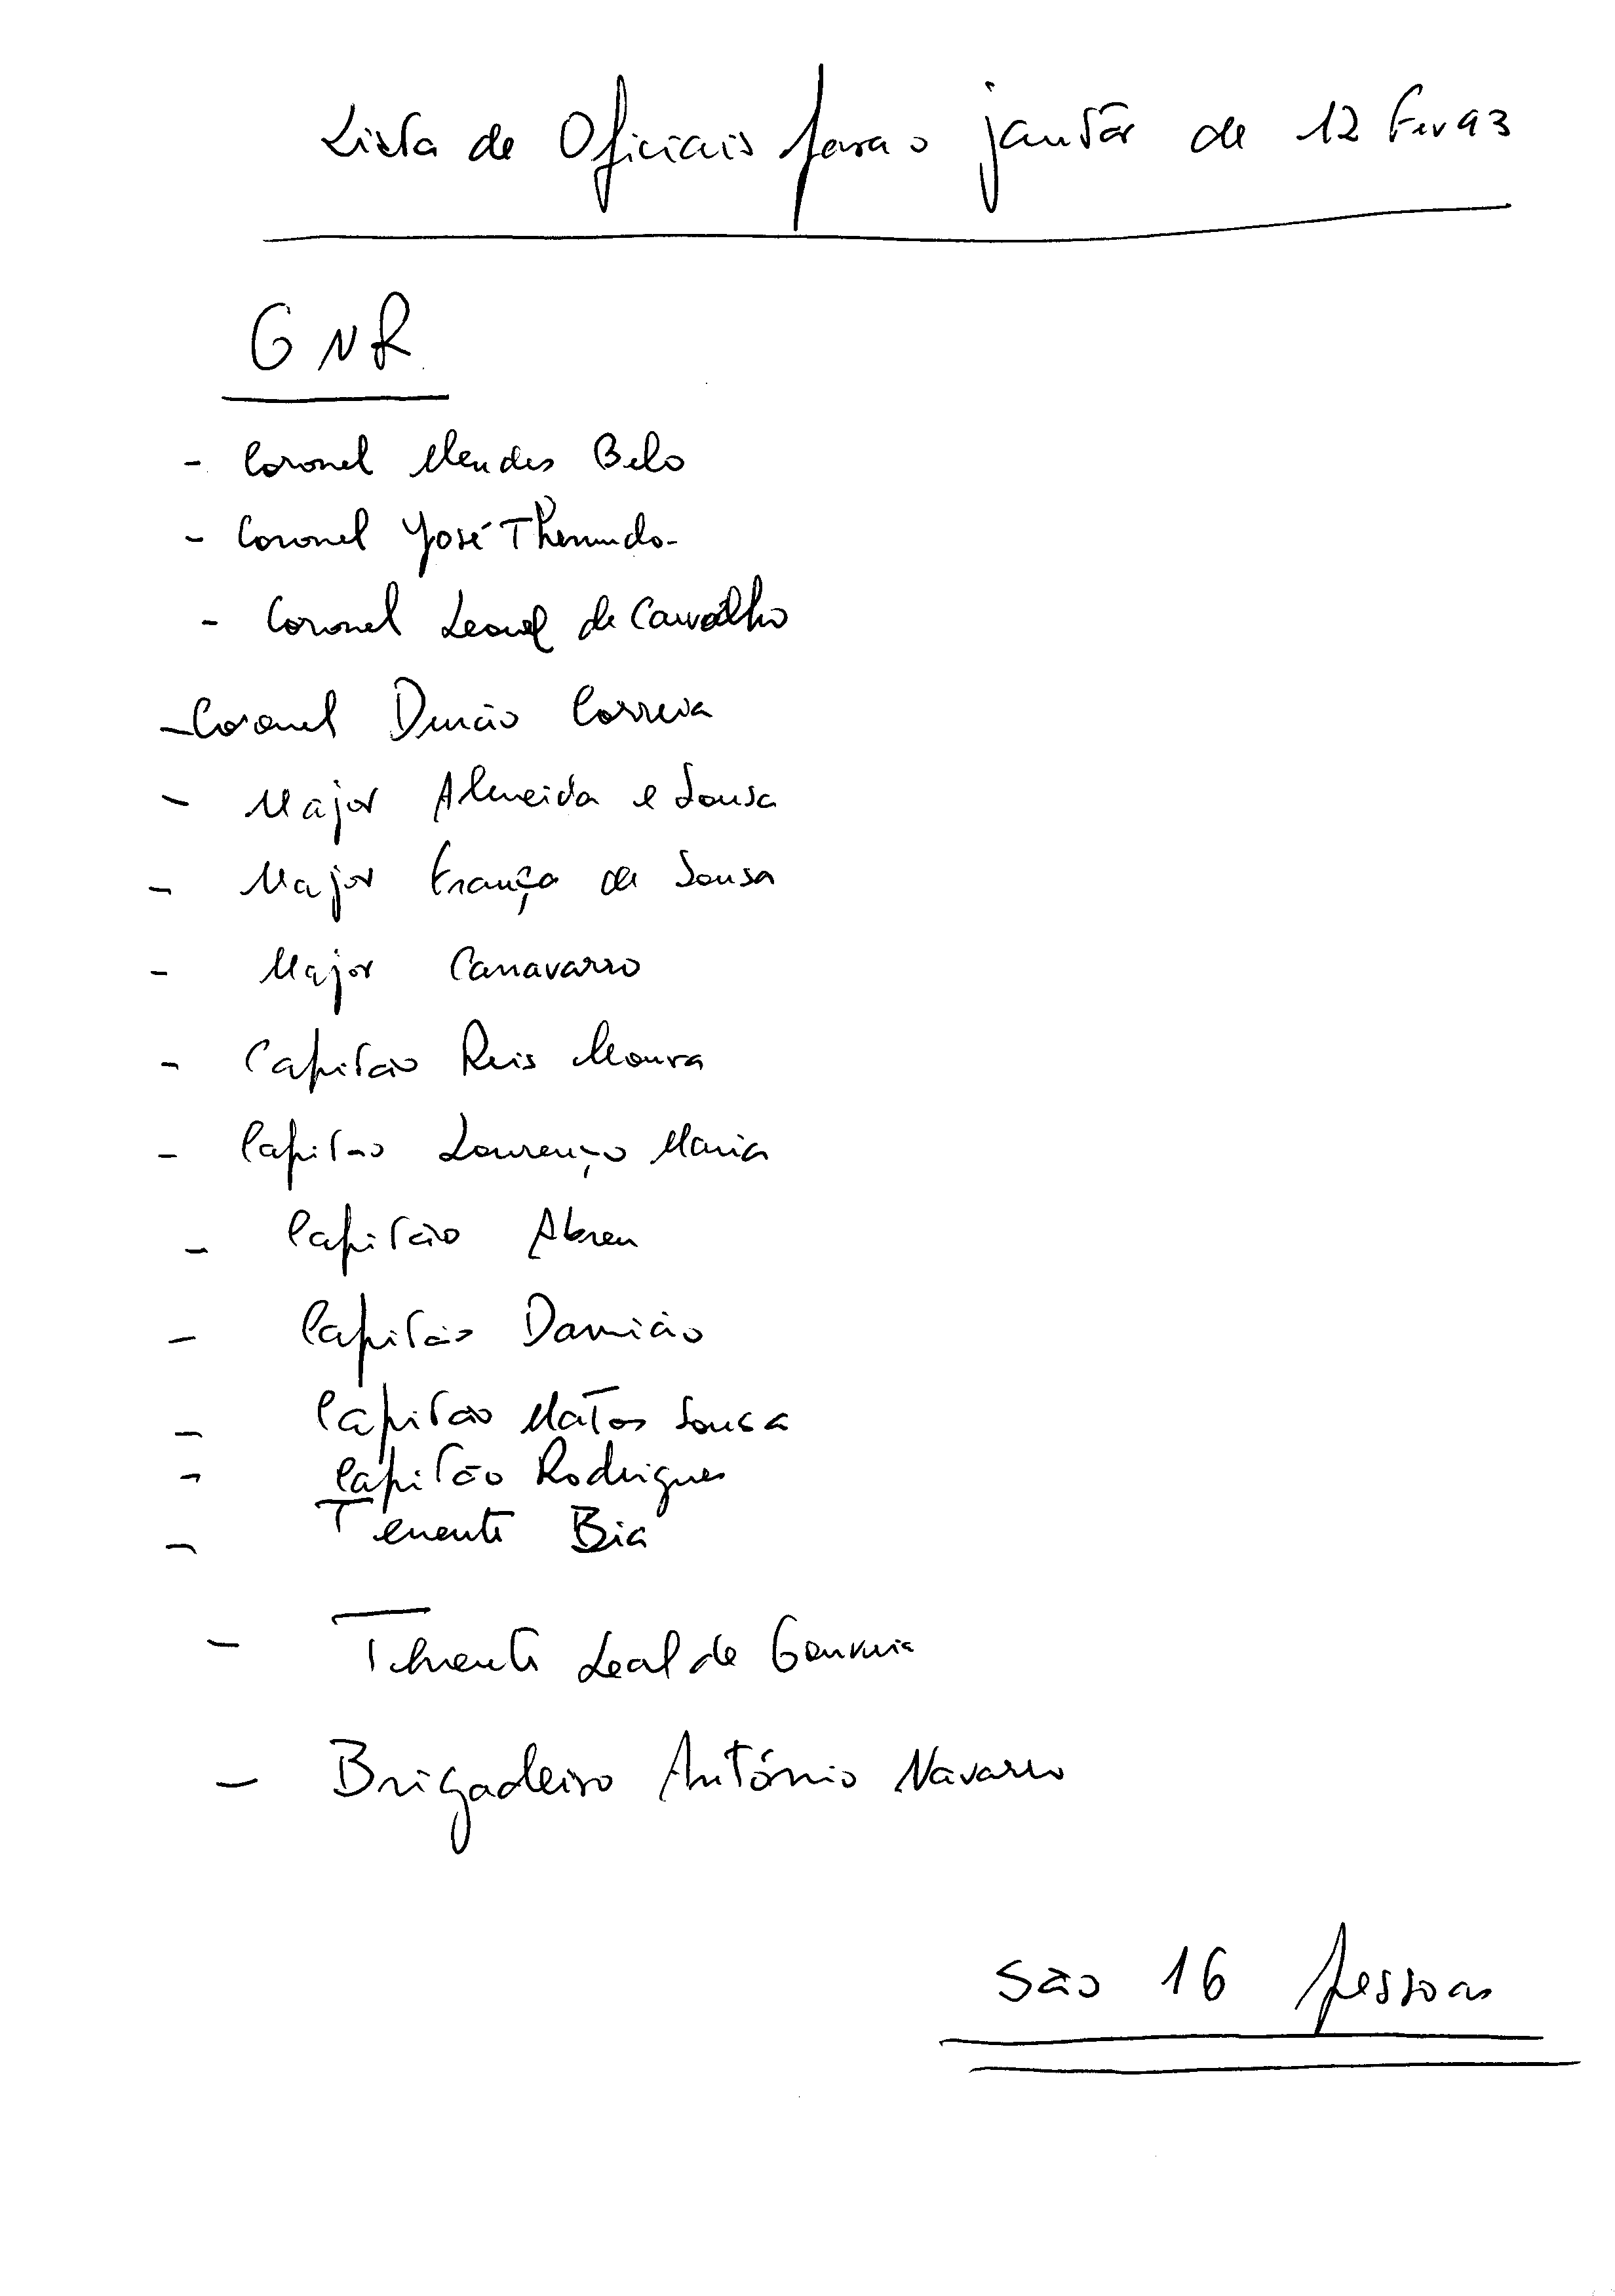 Lista de Oficiais para o jantar de 12 Fev 93
GNR
- Coronel Mendes Belo
- Coronel José
- Coronel Leonel de Carvalho
- Coronel Durão Correia
- Major Almeida e Sousa
- Major França de Sousa
- Major Canavarro
- Capitão Reis Moura
- Capitão Lourenço Maria
- Capitão Abreu
- Capitão Damião
- Capitão Matos Sousa
- Capitão Rodrigues
- Tenente Bia
- Tenente Leal de Gouveia
- Brigadeiro António Navarro
São 16 pessoas